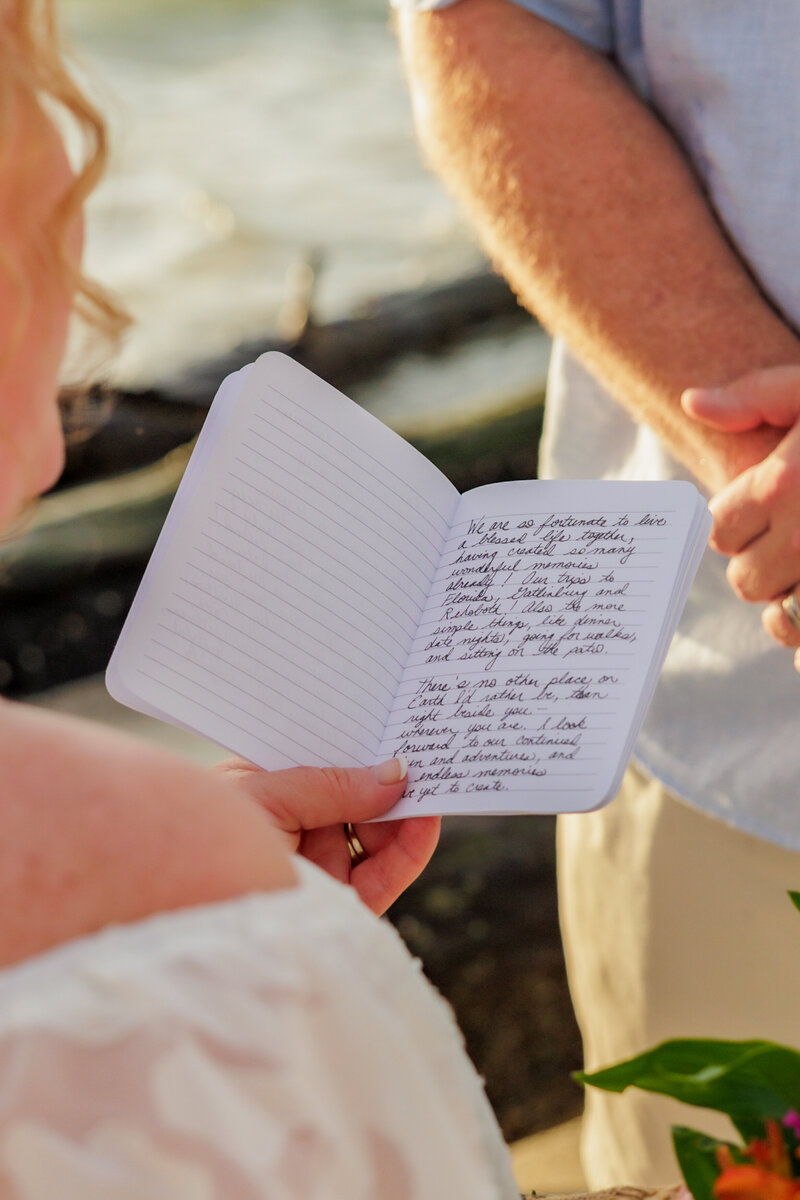 We are so fortunate to live
a blessed life together,
having created so many
wonderful memories
already! Our trips to
Florida, Gatlinburg and
Rehoboth! Also the more
simple things, like dinner,
date nights, going for walks,
and sitting on the patio.
There's no other place on
Earth I'd rather be, than
right beside you —
wherever you are. I look
forward to our continued
and adventures, and
endless memories
yet to create.